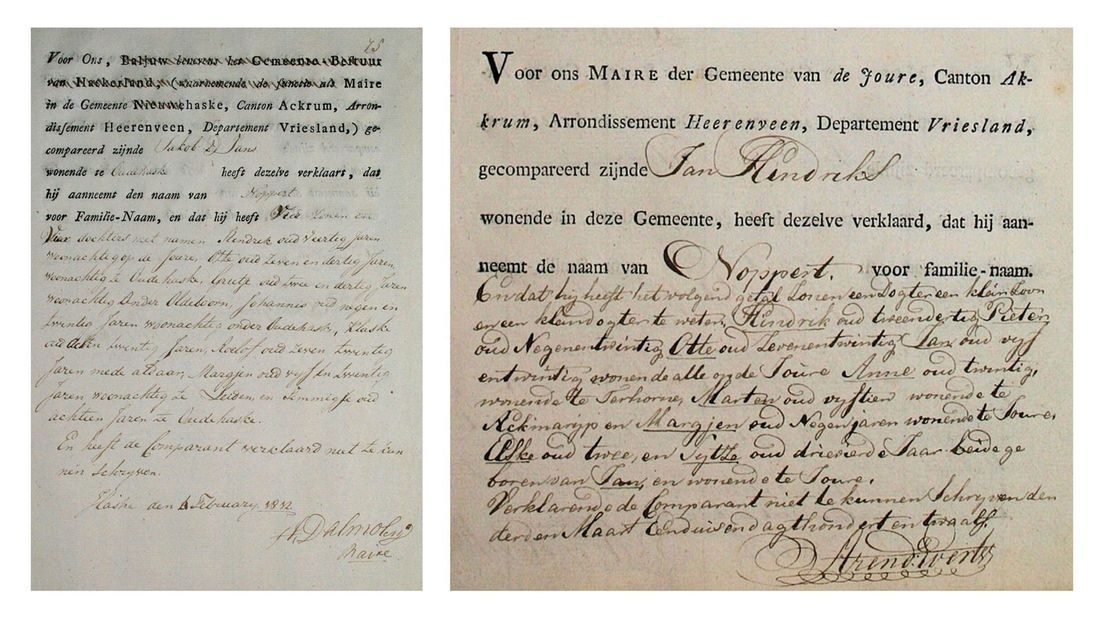 75
Voor Ons, Baljuw benevens het Gemeente-Bestuur
van Haskerland, (waarnemende de functie als Maire
in de Gemeente Nieuwehaske, Canton Ackrum, Arron-
dissement Heerenveen, Departement Vriesland,) ge-
compareerd zijnde Jakob Jans
wonende te Oudehaske heeft dezelve verklaart, dat
hij aanneemt den naam van Noppert
voor Familie-Naam, en dat hij heeft Vier Zonen en
Vier dochters met namen Hendrik oud veertig Jaren
woonachtig op de Joure, Otte oud Zeven en dertig Jaren
woonachtig te Oudehaske, Grietje oud twee en dertig Jaren
woonachtig onder Oldeboorn, Johannes oud negen en
twentig Jaren woonachtig onder Oudehaske, Klaske
oud Agt en twentig Jaren, Roelof oud Zeven en twentig
Jaren mede aldaar, Margjen oud vyf en twentig
Jaren woonachtig te Leiden en Jimmigje oud
achtien Jaren te Oudehaske.
En heeft de Comparant verklaard niet te kun
nen Schryven.
Haske den February 1812
Dalmolen
Maire
Voor ons Maire der Gemeente van de Joure, Canton Ak-
krum, Arrondissement Heerenveen, Departement Vriesland,
gecompareerd zijnde Jan Hendriks
wonende in deze Gemeente, heeft dezelve verklaard, dat hij aan-
neemt de naam van Noppert. voor familie-naam.
En dat hij heeft het volgend getal Zonen een Dogter een klein Zoon
en een klein dogter te weten, Hindrik oud tweendertig Pieter
oud Negenentwintig Otte oud Zevenentwintig Jan oud vyf
entwintig, wonende alle op de Joure Anne oud twintig,
wonende te Terhorne, Marten oud vyftien wonende te
Ackmaryp en Margjen oud Negen jaren wonende te Joure,
Elske oud twee, en Sytze oud drievierde Jaar beide ge
boren van Jan, en wonende te Joure.
Verklarende de Comparant niet te kunnen Schryven den
derden Maart Eenduisend agthondert en twaalf.
Arend Everts